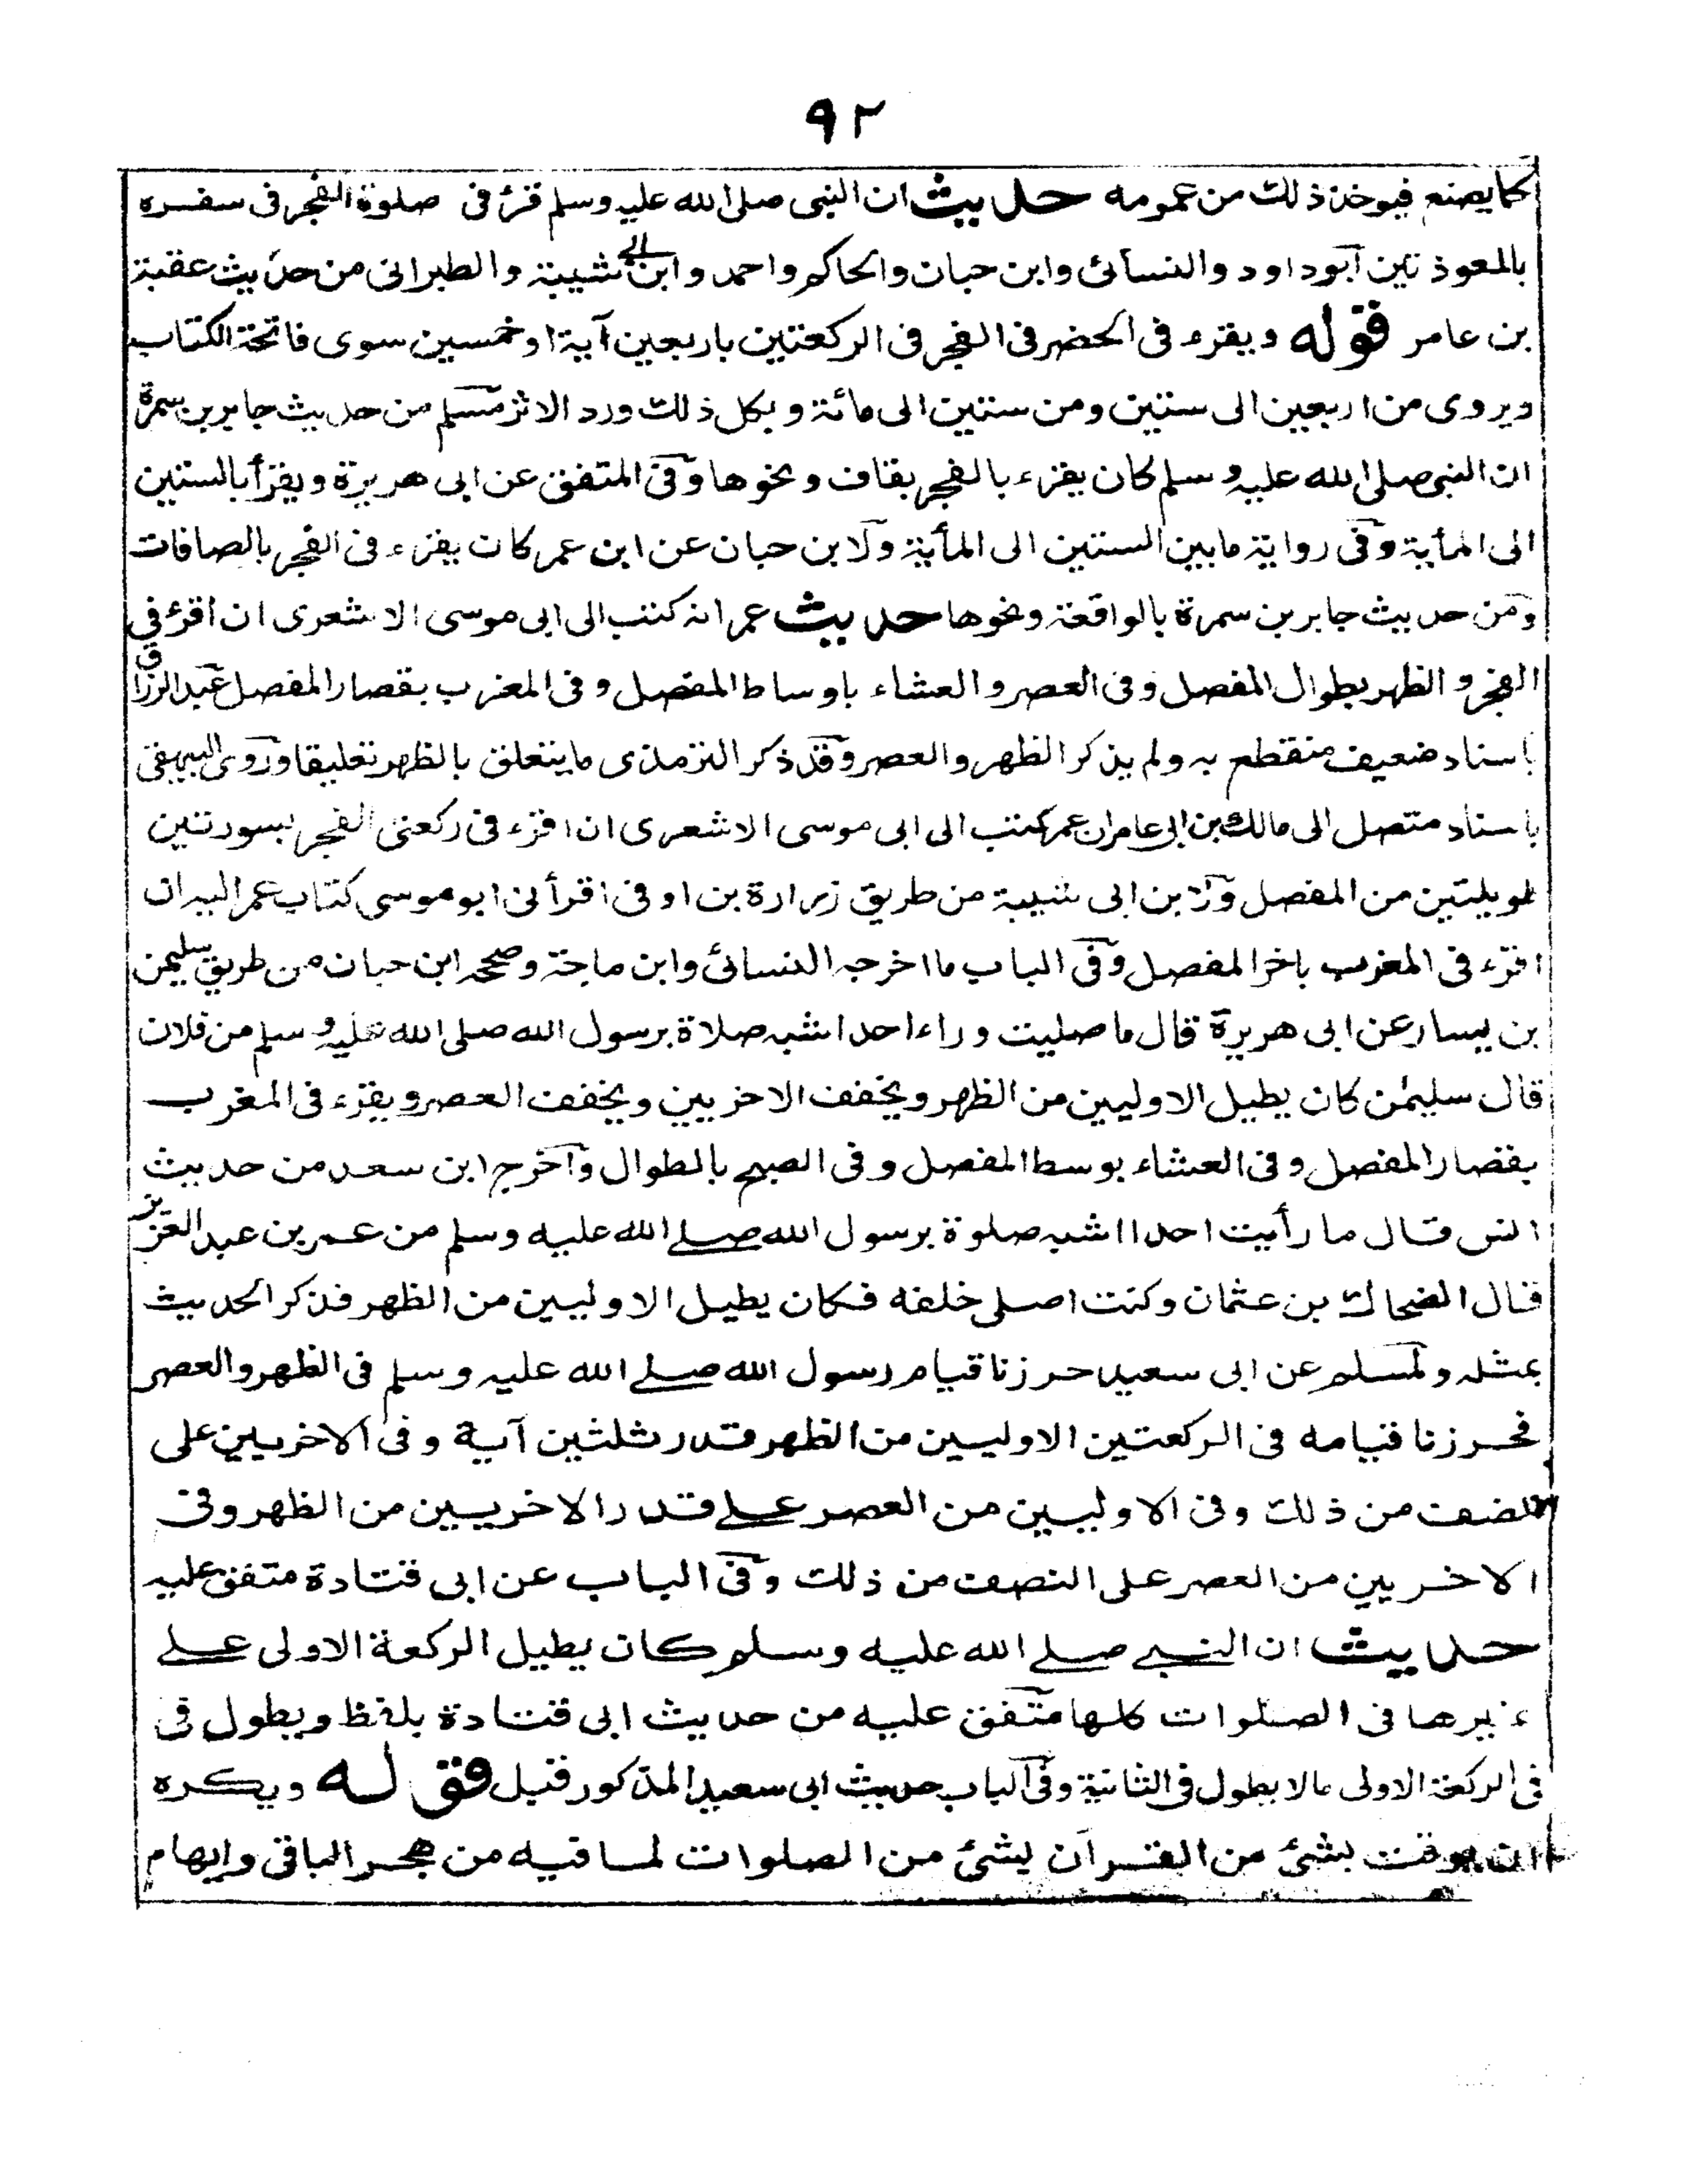 ٩٢
كما يصنع فيوخذ ذلك من عمومه حديث ان النبى صلى الله عليه وسلم قرئ فى صلوة الفجر فى سفره
بالمعوذتين ابوداود والنسائى وابن حبان والحاكم واحمد وابن ابى شيبة والطبرانى من حديث عقبة
بن عامر قوله ويقرء فى الحضر فى الفجر فى الركعتين باربعين آية او خمسين سوى فاتحة الكتاب
ويروى من اربعين الى ستين ومن ستين الى مائة وبكل ذلك ورد الاثر مسلم من حديث جابر بن سمرة
ان النبى صلى الله عليه وسلم كان يقرء بالفجر بقاف ونحوها وفى المتفق عن ابى هريرة ويقرأ بالستين
الى المأية وفى رواية ما بين الستين الى المأية ولابن حبان عن ابن عمر كان يقرء فى الفجر بالصافات
ومن حديث جابر بن سمرة بالواقعة ونحوها حديث عمر انه كتب الى ابى موسى الاشعرى ان اقرئ في
الفجر و الظهر بطوال المفصل وفى العصر والعشاء باوساط المفصل وفى المغرب بقصار المفصل عبد الرزاق
باسناد ضعيف منقطع به ولم يذكر الظهر والعصر وقد ذكر الترمذى ما يتعلق بالظهر تعليقا وروى البيهقى
باسناد متصل الى مالك بن ابى عامر ان عمر كتب الى ابى موسى الاشعرى ان اقرء فى ركعتى الفجر بسورتين
طويلتين من المفصل ولابن ابى شيبة من طريق زرارة بن اوفى اقرأنى ابو موسى كتاب عمر اليه ان
اقرء فى المغرب باخر المفصل وفى الباب ما اخرجه النسائى وابن ماجة وصححه ابن حبان من طريق سليمن
بن يسار عن ابى هريرة قال ما صليت وراء احد اشبه صلاة برسول الله صلى الله عليه وسلم من فلان
قال سليمن كان يطيل الاوليين من الظهر ويخفف الاخريين ويخفف العصر ويقرء فى المغرب
بقصار المفصل وفى العشاء بوسط المفصل وفى الصبح بالطوال واخرج ابن سعد من حديث
انس قال ما رأيت احدا اشبه صلوة برسول الله صلے الله عليه وسلم من عمر بن عبد العزيز
قال الضحاك بن عثمان وكنت اصلى خلفه فكان يطيل الاوليين من الظهر فذكر الحديث
بمثله ولمسلم عن ابى سعيد حرزنا قيام رسول الله صلے الله عليه وسلم فى الظهر والعصر
فحرزنا قيامه فى الركعتين الاوليين من الظهر قدر ثلثين آية وفى الاخريين على
النصف من ذلك وفى الاوليين من العصر علے قدر الاخريين من الظهر وفى
الاخريين من العصر على النصف من ذلك وفى الباب عن ابى قتادة متفق عليه
حديث ان النبے صلے الله عليه وسلم كان يطيل الركعة الاولى علے
غيرها فى الصلوات كلها متفق عليه من حديث ابى قتادة بلفظ ويطول فى
فى الركعة الاولى مالا يطول فى الثانية وفى الباب حديث ابى سعيد المذكور قبل قوله ويكره
ان يوقت بشئ من القران لشئ من الصلوات لما فيه من هجر الباقى وايهام